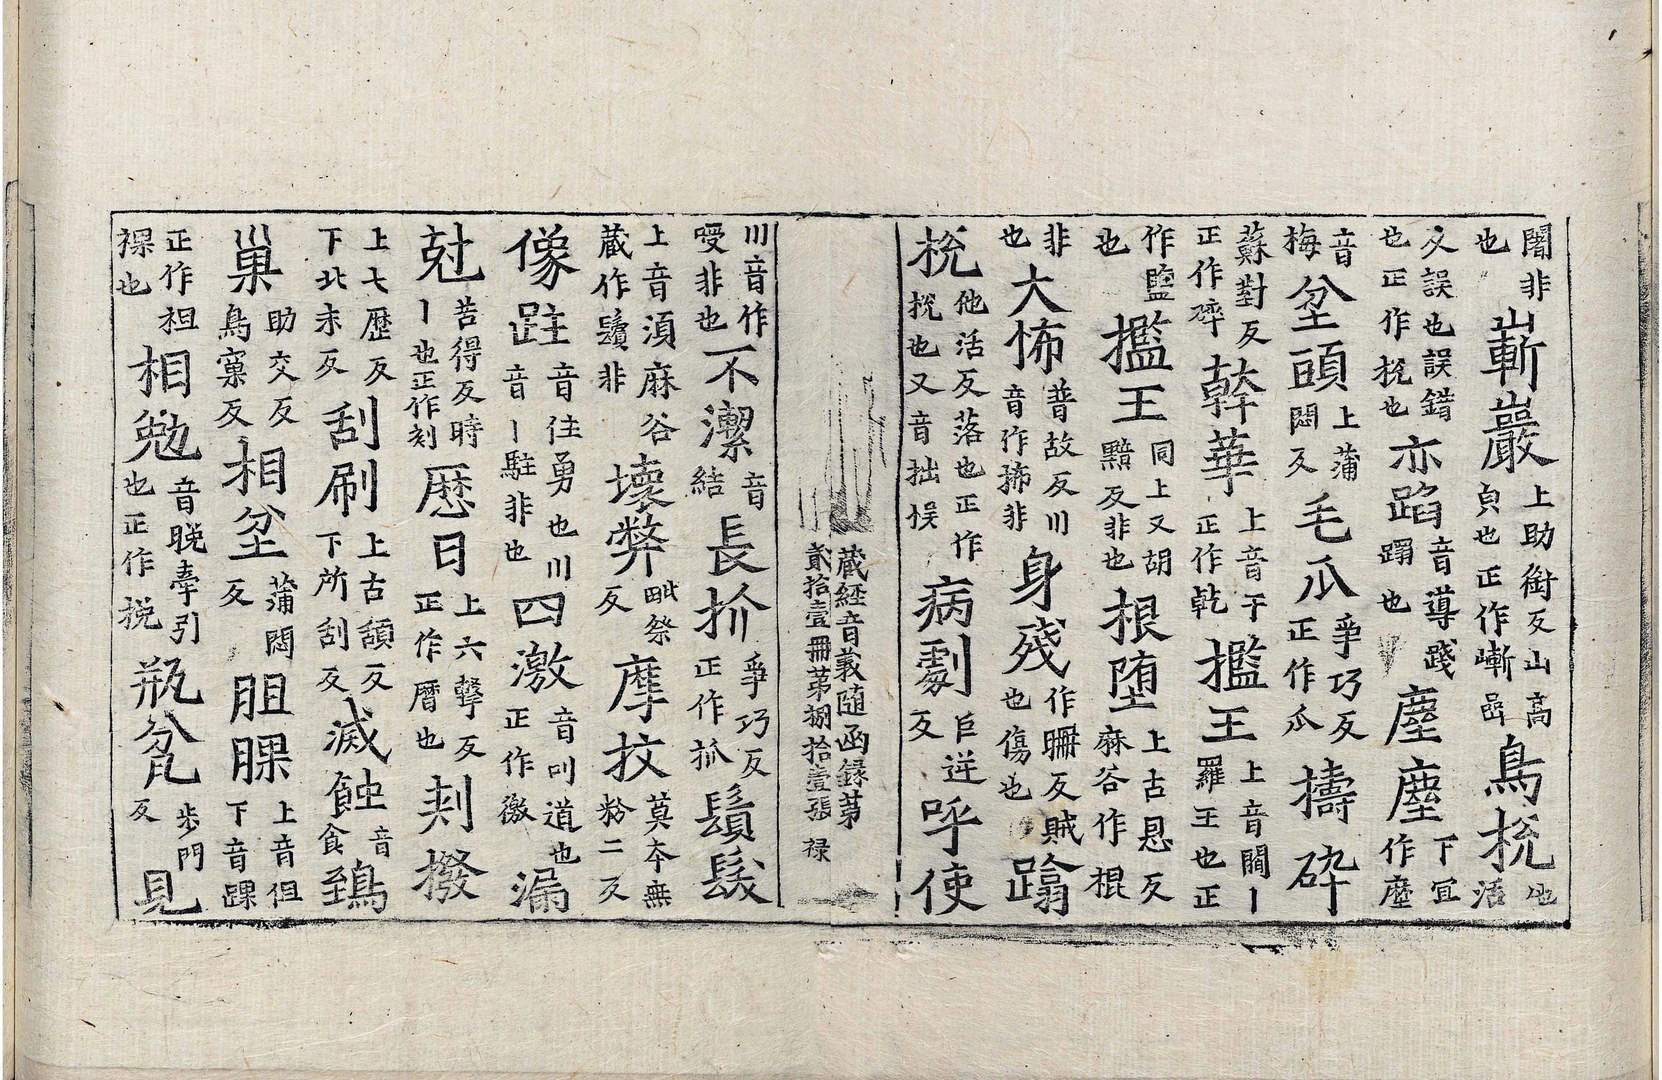 闍非也嶄巖上助銜反山高皃也正作嶃嵒鳥挩他活
反誤也誤錯也正作挩也亦蹈音導踐蹋也塵塵下冝作㕓
音梅坌頭上蒲悶反毛爪爭巧反正作爪擣碎
蘇對反正作碎幹華上音干正作乾㩜王上音閻丨羅王也正
作鹽也㩜王同上又胡黯反非也根堕上古恩反麻谷作棍
非也大怖普故反川音作抪非身殘作𣍘反賊也傷也蹹
挩他活反落也正作挩也又音拙悮病劇巨逆反呼使
藏經音義随函録第貳拾壹冊第捌拾壹張 禄
川音作嘤非也不潔音結長抓爭巧反正作抓鬚髮
上音湏麻谷藏作鬚非壞弊毗祭反摩抆莫夲無粉二反
像跓音住勇也川音丨駐非也四激音叫道也正作徼漏
尅苦得反時丨也正作刻歷日上六擊反正作曆也剌撥
上七歴反下北末反刮刷上古頟反下所刮反滅蝕音食鵄
巢助交反鳥窠反相坌蒲悶反胆躶上音但下音踝
正作袒裸也相勉音晚牽引也正作挽瓶瓫步門反見